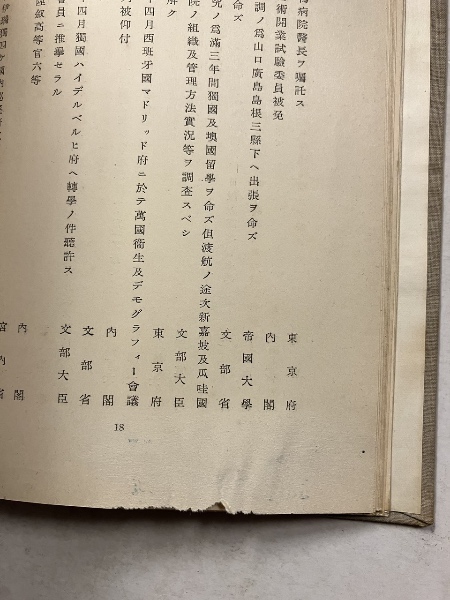 病院醫長ヲ囑託ス 東京府
術開業試驗委員被免 內閣
調ノ爲山口廣島島根三縣下ヘ出張ヲ命ズ 帝國大學
命ズ 文部省
究ノ爲滿三年間獨國及墺國留學ヲ命ズ但渡航ノ途次新嘉坡及瓜哇國
院ノ組織及管理方法實況等ヲ調査スベシ 文部大臣
解ク 東京府
年四月西班牙國マドリッド府ニ於テ萬國衞生及デモグラフィー會議
被仰付 內閣
四月獨國ハイデルベルヒ府ヘ轉學ノ件聽許ス 文部省
會員ニ推擧セラル 文部大臣
陞敍高等官六等 內閣
宮內省
18